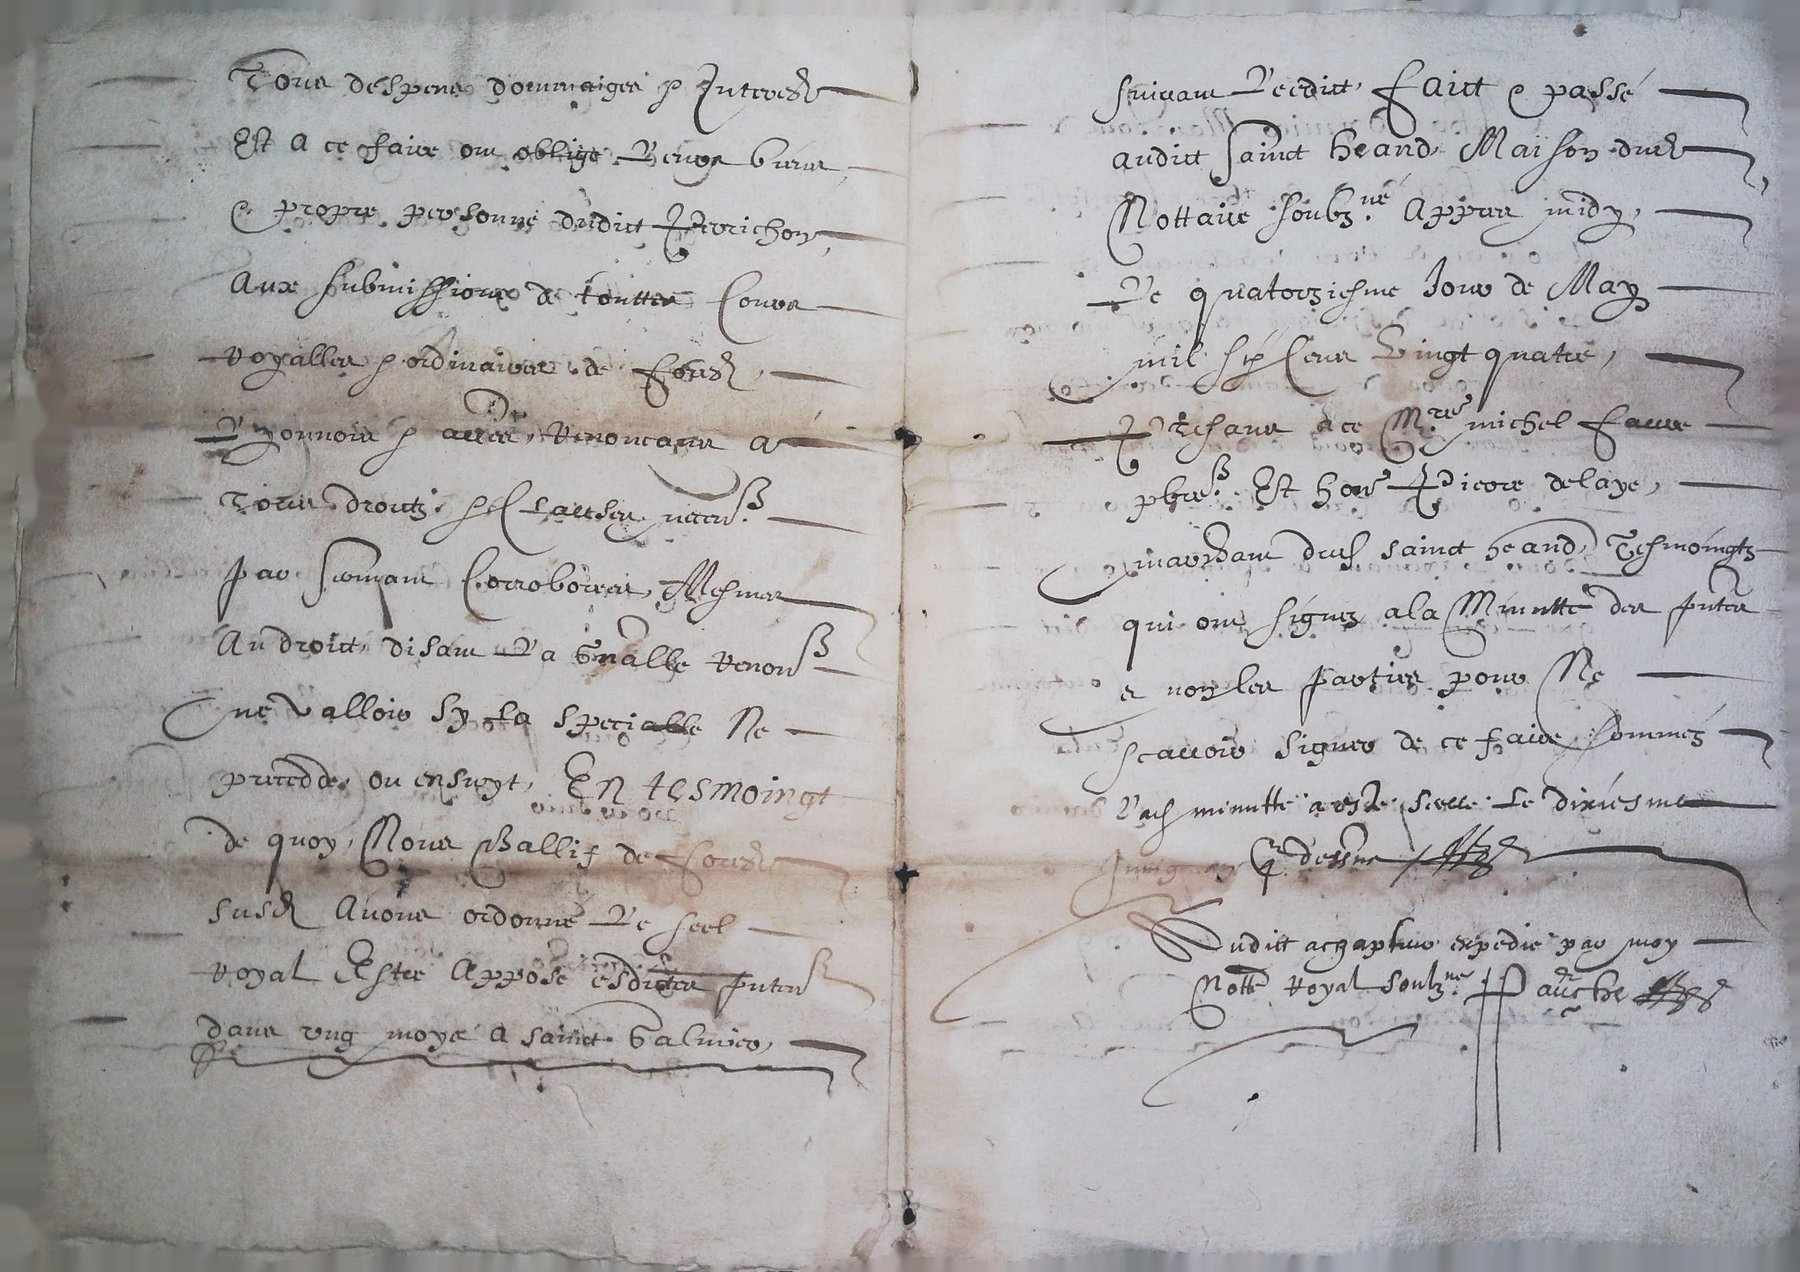 Tous despens dommaiges & Interestz
Est a ce faire ont oblige Leurs biens
& propre personne dudict Perrichon,
Aux submissions de touttes Cours
royalles & ordinaires de forestz,
Lyonnois & aultres, renoncans a
Tous droictz &
par serment Corroborees, Mesmes
Au droict disant La gnalle renon
ne valloir sy la specialle Ne
precedde, ou ensuyt, En tesmoingt
de quoy, Nous Ballif de forestz
susd Avons ordonné Le seel
royal Estre Apposé esdictes pntes
dans ung moys a sainct Galmier,
suivant L'eedict, faict & passé
audict sainct heand, Maison dud
Nottaire soubzné Appres midy,
Le quatorziesme Jour de May
mil six Cens Vingt quatre,
Presans a ce Mre michel faure
pbre Est hone Pierre delaye,
marchant dud sainct heand, Tesmoingtz
qui ont signez a la Minutte des pntes
& non les parties pour Ne
scavoir signer de ce faire sommés
La minutte a esté scellé Le dixiesme
Juing an q dessus
Dudict achapteur expedié par moy
Nottre royal soubzné